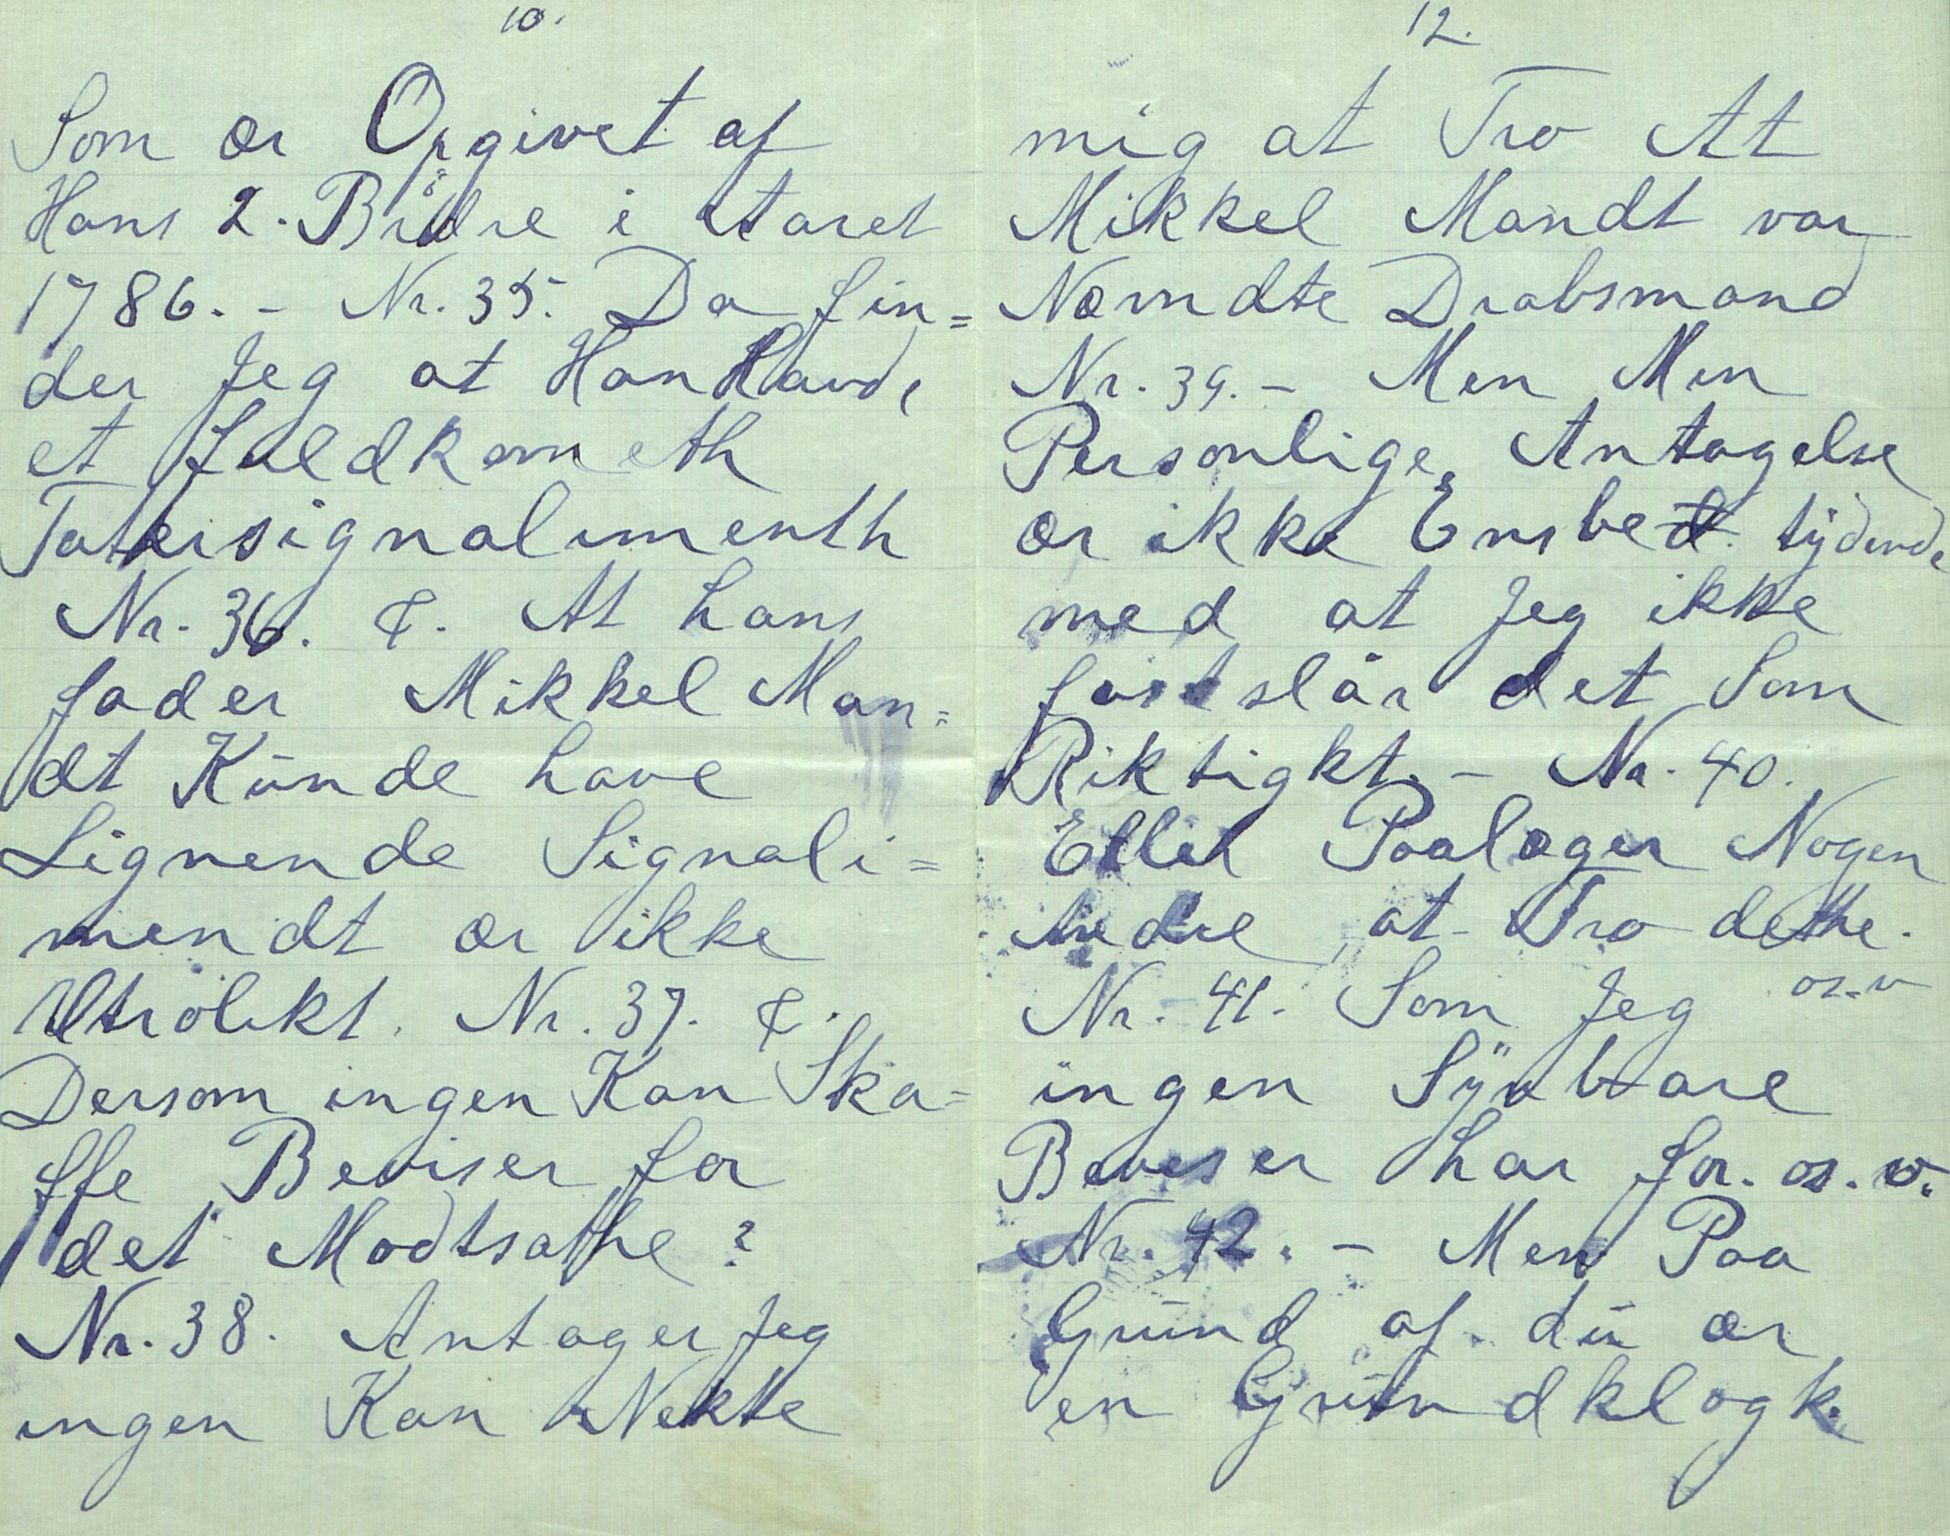 10.
Som ær Opgivet af
Hans 2. Brödre i Aaret
1786. - Nr. 35. Da fin=
der Jeg at Han Havde
et fuldkometh
Tatersignalimenth
Nr. 36. &. At hans
fader Mikkel Man=
dt Kunde have
Lignende Signali=
mendt ær ikke
Utrolikt. Nr. 37. &.
Dersom ingen Kan Ska=
ffe Beviser for
det Modtsathe?
Nr. 38. Antager Jeg
ingen Kan Nekte
12.
mig at Tro At
Mikkel Mandt var
Næmdte Drabsmand
Nr. 39. - Men Min
Personlige Antagelse
ær ikke Ensbe tydende
med at Jeg ikke
fastslår det Som
Riktigkt. - Nr. 40.
Eller Paalæger Nogen
Andre at Tro dethe.
Nr. 41. Som Jeg os.v
ingen Synbare
Beviser har for. os. v.
Nr. 42. - Men Paa
Grund af du ær
en Grundklogk